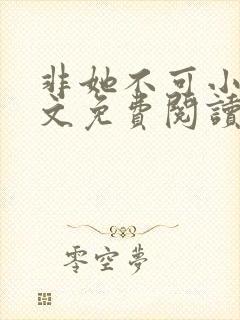 非她不可小
文免費閱讀
零空夢